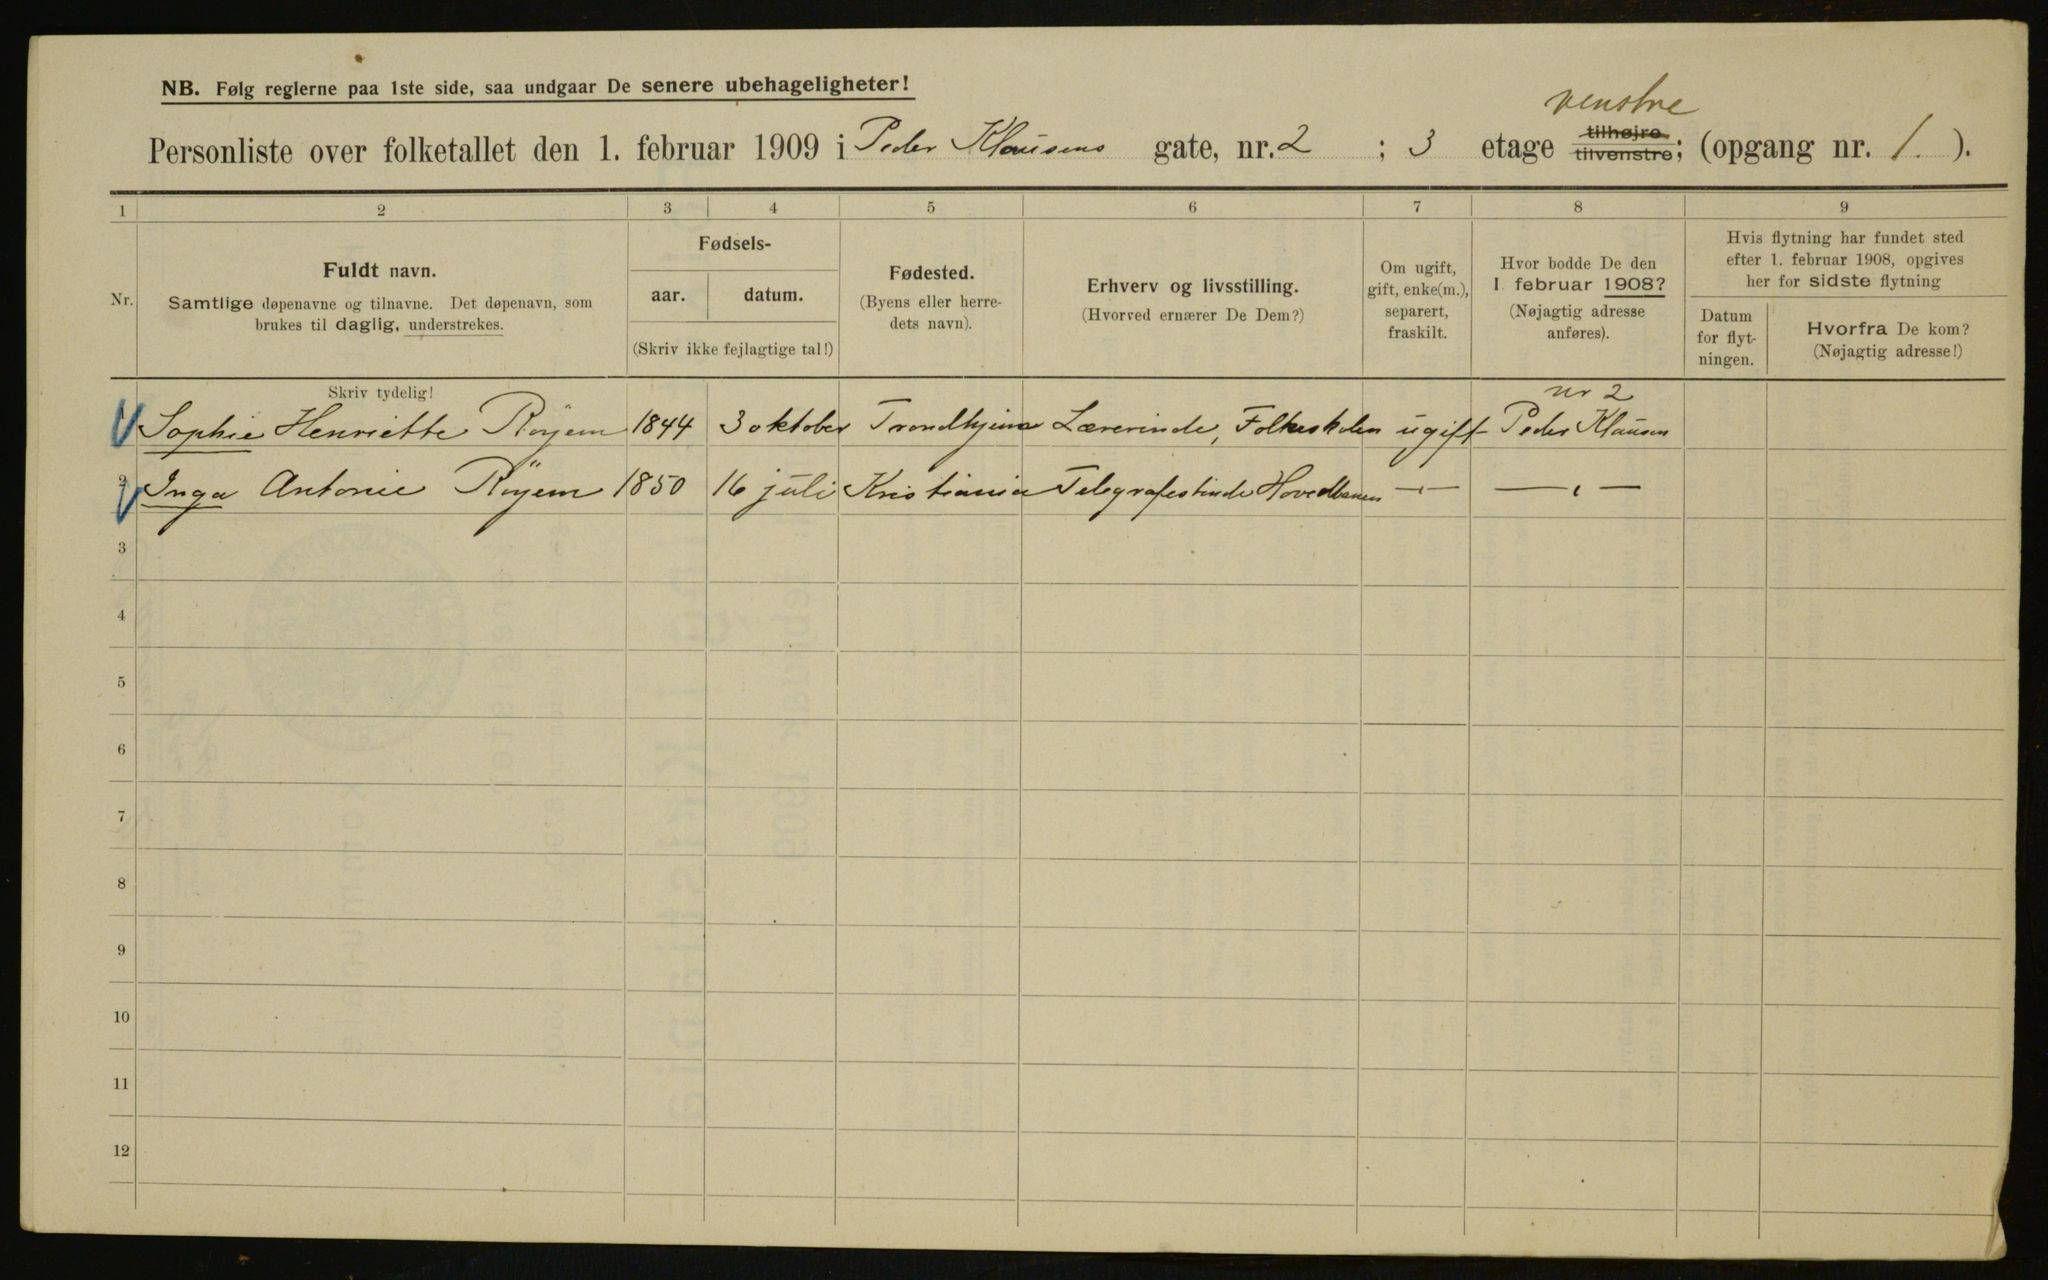 NB. Følg reglerne paa 1ste side, saa undgaar De senere ubehageligheter!
venstre
Personliste over folketallet den 1. februar 1909 i Peder Klausens gate, nr. 2 ; 3 etage tilhøjre tilvenstre; (opgang nr. 1. ).
1 2 3 4 5 6 7 8 9
Nr.
Fuldt navn.
Samtlige døpenavne og tilnavne. Det døpenavn, som
brukes til daglig, understrekes.
Fødsels-
aar. datum.
(Skriv ikke fejlagtige tal!)
Fødested.
(Byens eller herre-
dets navn).
Erhverv og livsstilling.
(Hvorved ernærer De Dem?)
Om ugift,
gift, enke(m.),
separert,
fraskilt.
Hvor bodde De den
1. februar 1908?
(Nøjagtig adresse
anføres).
Hvis flytning har fundet sted
efter 1. februar 1908, opgives
her for sidste flytning
Datum
for flyt-
ningen.
Hvorfra De kom?
(Nøjagtig adresse!)
Skriv tydelig!
nr 2
Sophie Henriette Röyem 1844 3 oktober Trondhjem Lærerinde, Folkeskolen ugift Peder Klausen
2 Inga Antonie Röyem 1850 16 juli Kristiania Telegrafistinde Hovedbanen — „ — — „ —
3
4
5
6
7
8
9
10
11
12